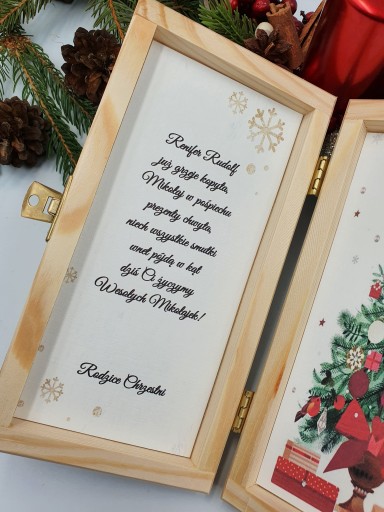 Renifer Rudolf
już grzeje kopyta,
Mikołaj w pośpiechu
prezenty chwyta,
niech wszystkie smutki
wnet pójdą w kąt
dziś Ci życzymy
Wesołych Mikołajek!
Rodzice Chrzestni